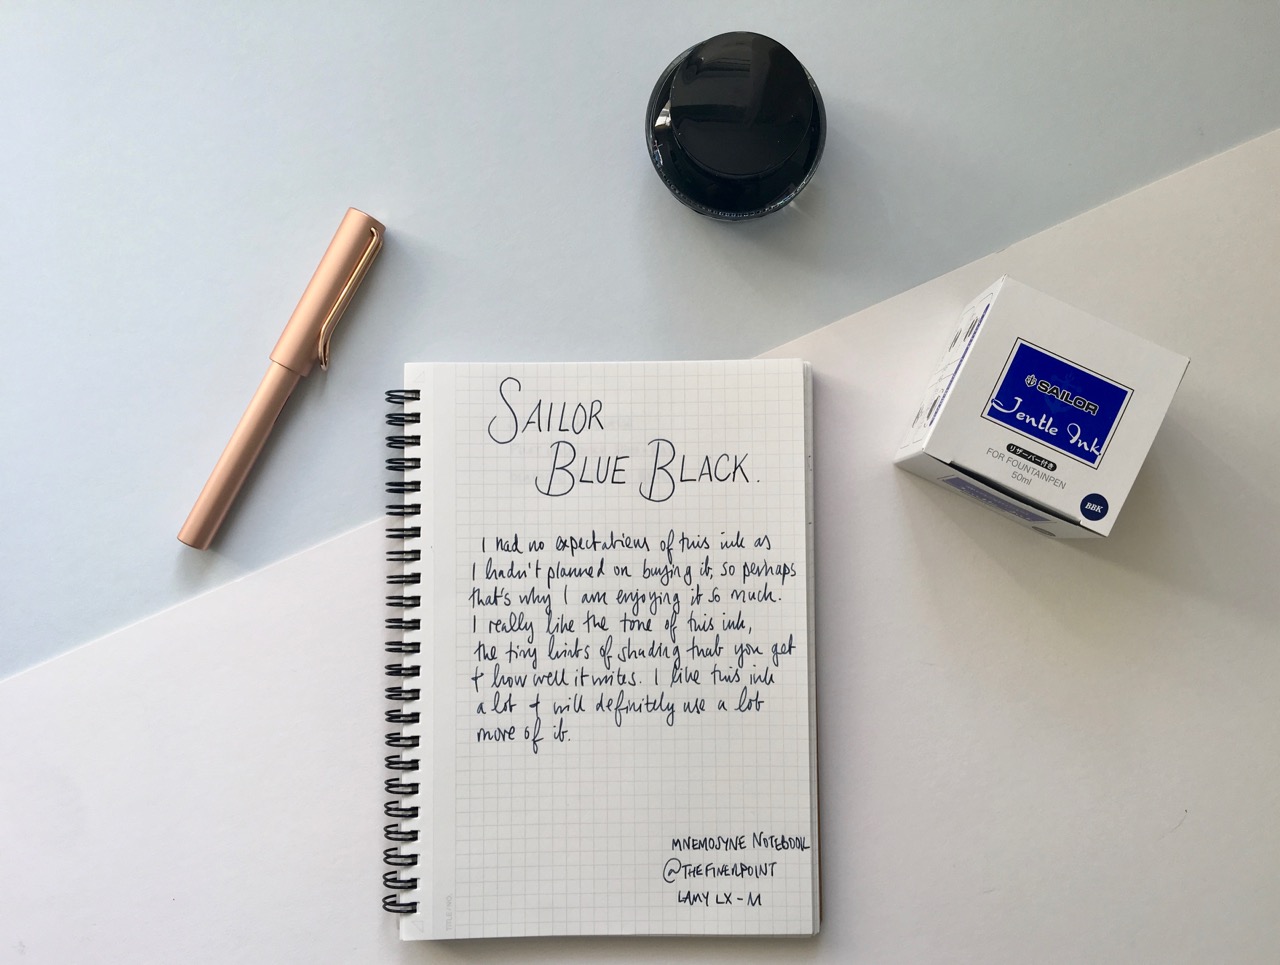 SAILOR
BLUE BLACK.
I had no expectations of this ink as
I hadn't planned on buying it, so perhaps
that's why I am enjoying it so much.
I really like the tone of this ink,
the tiny hints of shading that you get
+ how well it writes. I like this ink
a lot + will definitely use a lot
more of it.
MNEMOSYNE NOTEBOOK
@THEFINERPOINT
LAMY LX - M
SAILOR
Jentle Ink
リザーバー付き
FOR FOUNTAINPEN
50ml
BBK